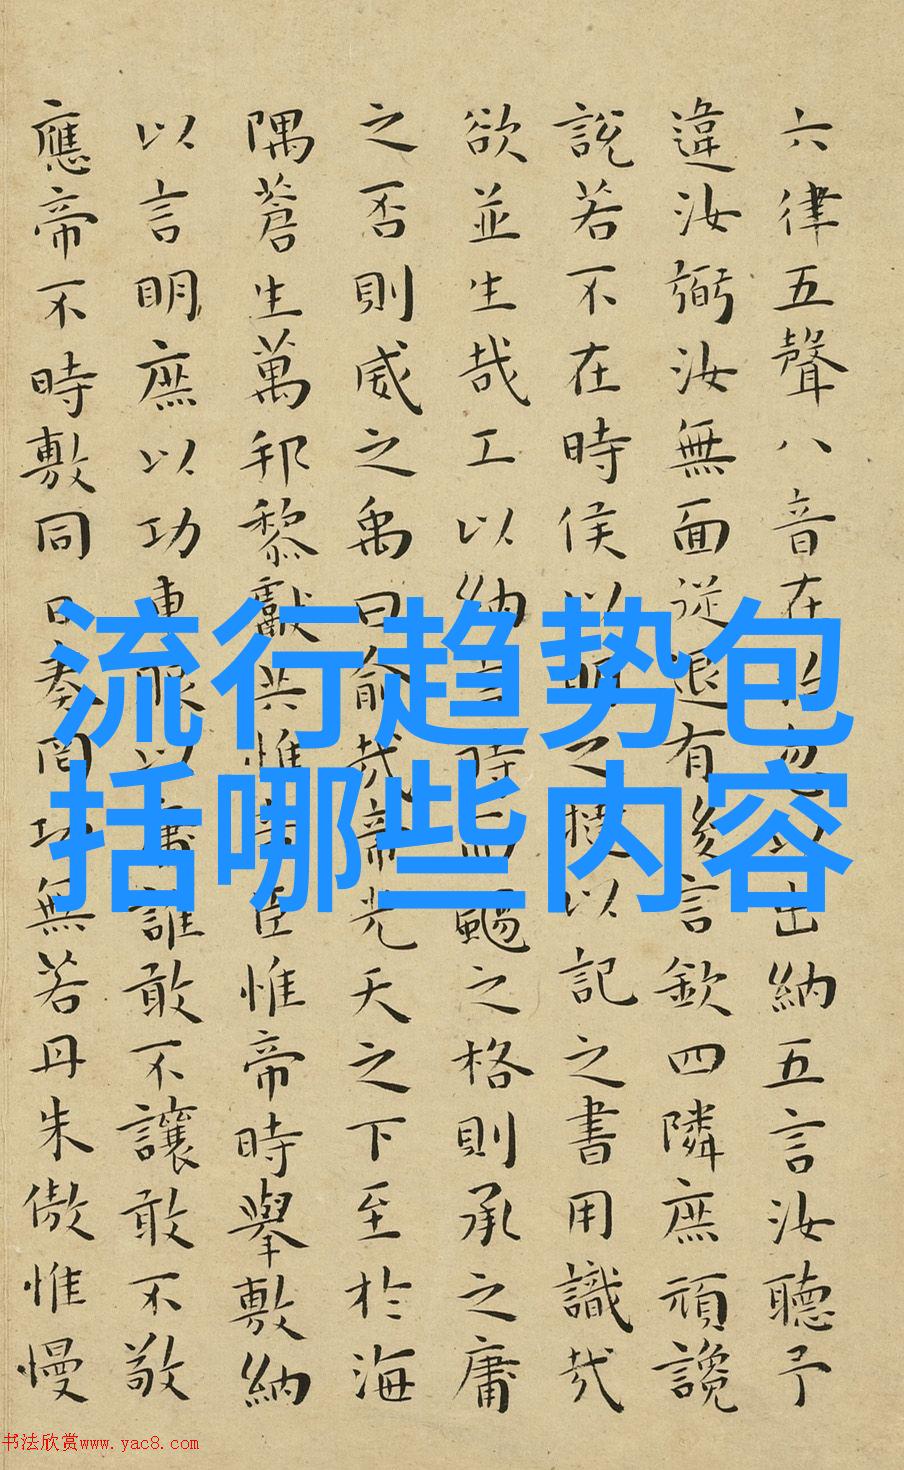 流行趋势包
括哪些内容
六律五聲八音在治忽以出納五言汝聽予
違汝弼汝無面從退有後言欽四隣庶頑讒
說若不在時侯以明之撻以記之書用識哉
欲並生哉工以納言時而颺之格則承之庸
之否則威之禹曰俞哉帝光天之下至於海
隅蒼生萬邦黎獻共惟帝臣惟帝時舉敷納
以言明庶以功車服以庸誰敢不讓敢不敬
應帝不時敷同日奏罔功無若丹朱傲惟慢
书法欣赏www.yac8.com